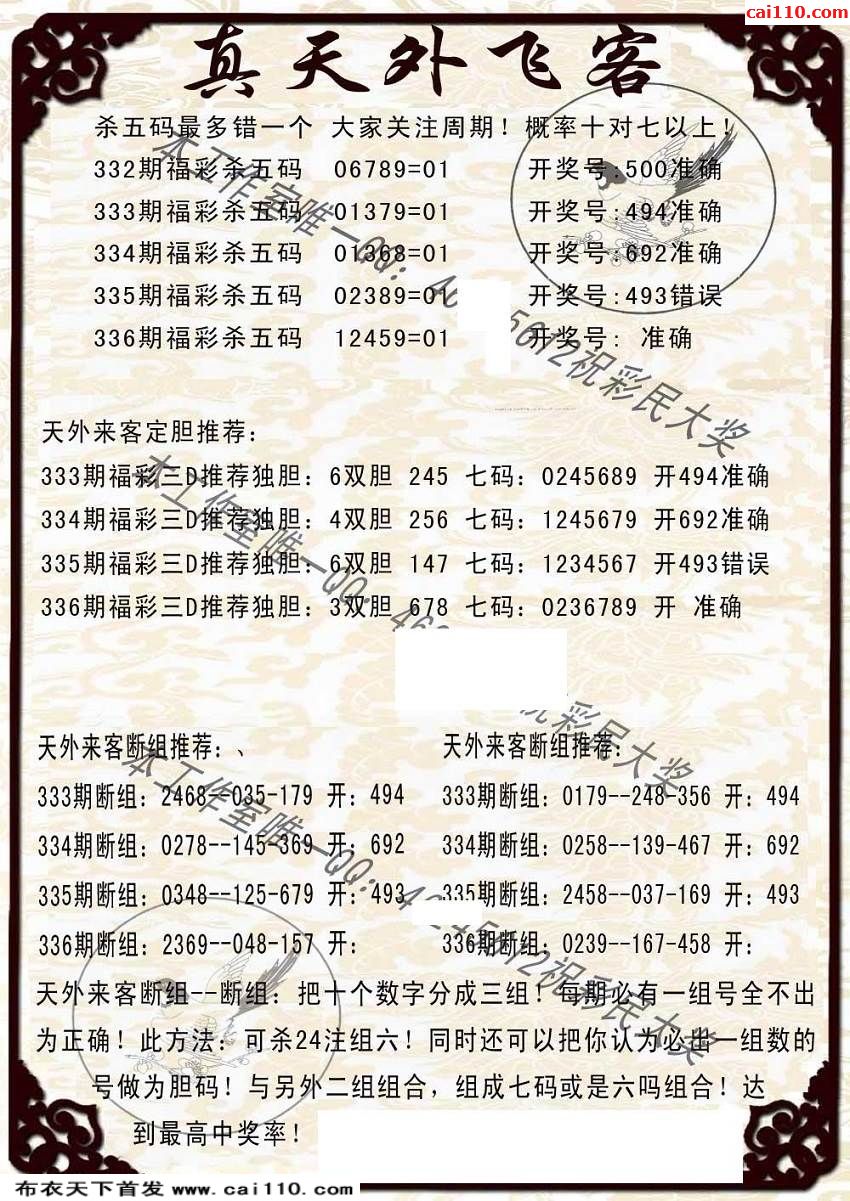 cai110.com
真天外飞客
杀五码最多错一个 大家关注周期！概率十对七以上！
332期福彩杀五码 06789=01 开奖号:500准确
333期福彩杀五码 01379=01 开奖号:494准确
334期福彩杀五码 01368=01 开奖号:692准确
335期福彩杀五码 02389=01 开奖号:493错误
336期福彩杀五码 12459=01 开奖号: 准确
天外来客定胆推荐：
333期福彩三D推荐独胆：6双胆 245 七码：0245689 开494准确
334期福彩三D推荐独胆：4双胆 256 七码：1245679 开692准确
335期福彩三D推荐独胆：6双胆 147 七码：1234567 开493错误
336期福彩三D推荐独胆：3双胆 678 七码：0236789 开 准确
天外来客断组推荐：、 天外来客断组推荐：
333期断组：2468--035-179 开：494 333期断组：0179--248-356 开：494
334期断组：0278--145-369 开：692 334期断组：0258--139-467 开：692
335期断组：0348--125-679 开：493 335期断组：2458--037-169 开：493
336期断组：2369--048-157 开： 336期断组：0239--167-458 开：
天外来客断组--断组：把十个数字分成三组！每期必有一组号全不出
为正确！此方法：可杀24注组六！同时还可以把你认为必出一组数的
号做为胆码！与另外二组组合，组成七码或是六吗组合！达
到最高中奖率！
本工作室唯一QQ：46 5612祝彩民大奖
本工作室唯一QQ：46 祝彩民大奖
本工作室唯一QQ：4 45612祝彩民大奖
布衣天下首发 www.cai110.com